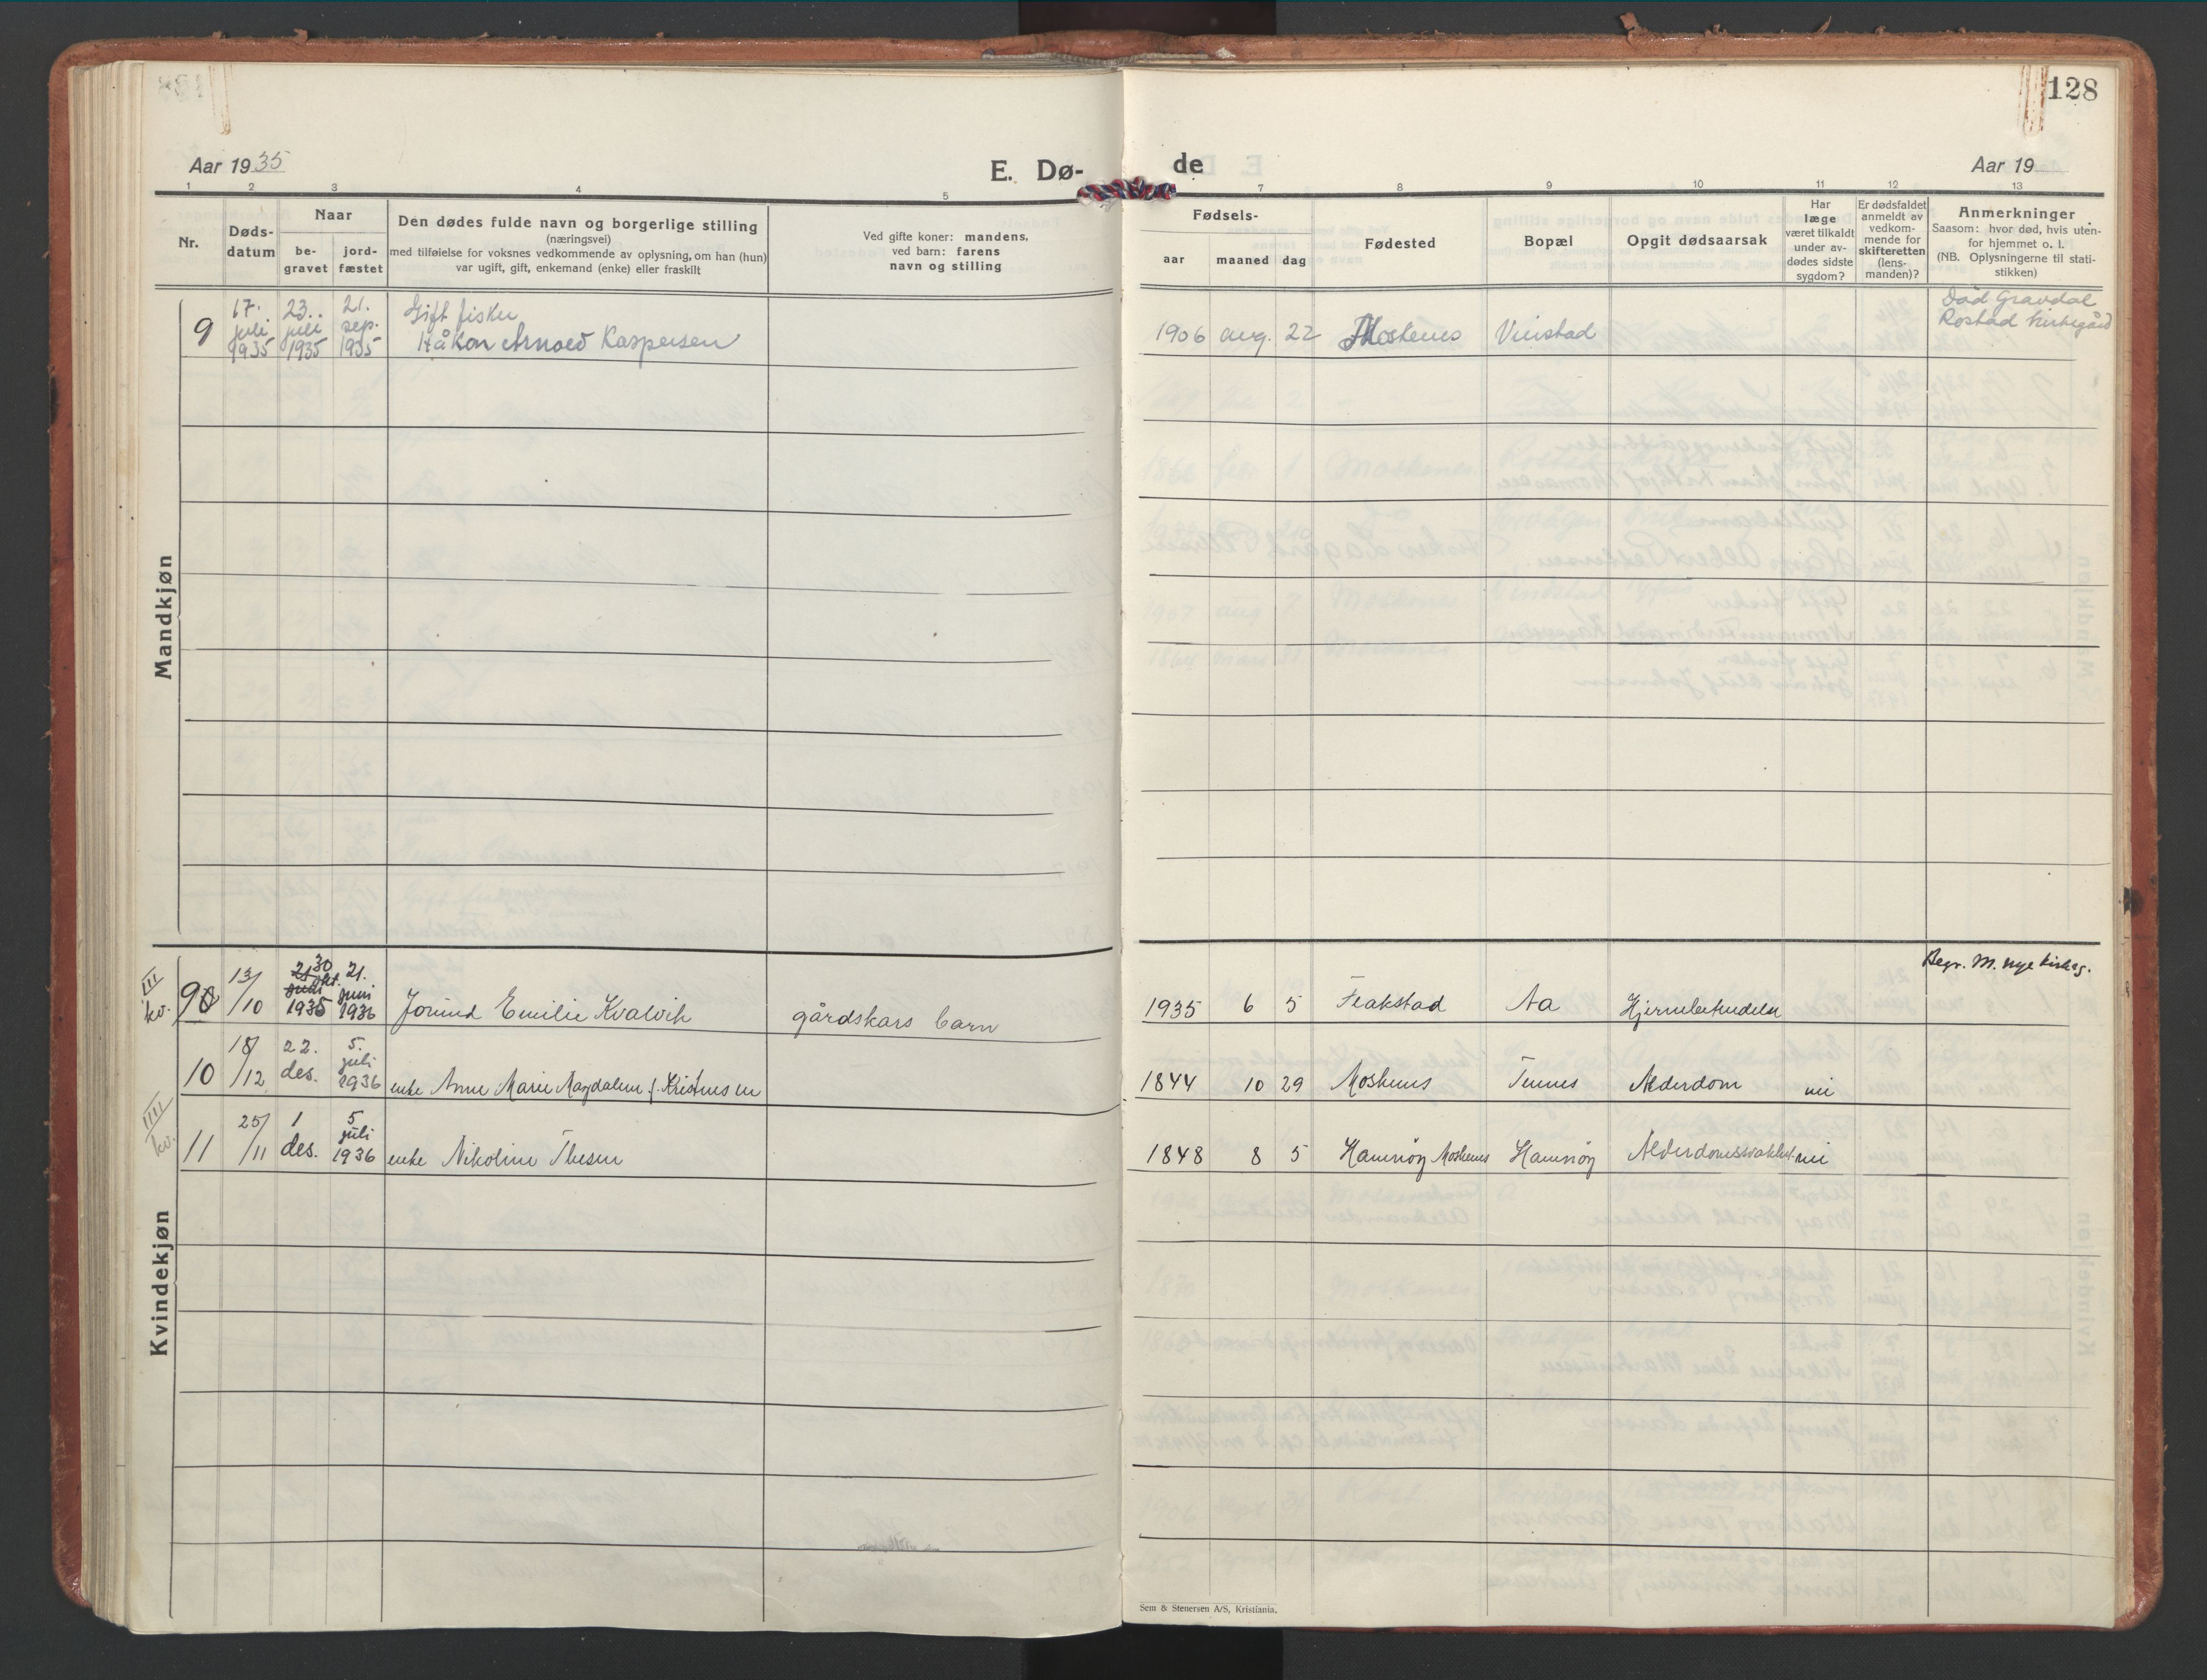 128
Aar 1935
E. Dø-
de
Aar 19
1 2 3 4 5 7 8 9 10 11 12 13
Nr.
Døds-
datum
Naar
be-
gravet
jord-
fæstet
Den dødes fulde navn og borgerlige stilling
(næringsvei)
med tilføielse for voksnes vedkommende av oplysning, om han (hun)
var ugift, gift, enkemand (enke) eller fraskilt
Ved gifte koner: mandens,
ved barn: farens
navn og stilling
Fødsels-
aar maaned dag
Fødested
Bopæl
Opgit dødsaarsak
Har
læge
været tilkaldt
under av-
dødes sidste
sygdom?
Er dødsfaldet
anmeldt av
vedkom-
mende for
skifteretten
(lens-
manden)?
Anmerkninger
Saasom: hvor død, hvis uten-
for hjemmet o. l.
(NB. Oplysningerne til stati-
stikken)
Mandkjøn
9
17.
juli
1935
23.
juli
1935
21.
sep.
1935
Gift fisker
Håkon Arnold Kaspersen
1906 aug. 22 Moskenes Vinstad
Død Gravdal
Rostad kirkegård
Kvindekjøn
III
kv.
9
13/10
30
okt.
1935
21.
juni
1936
Jorund Emilie Kvalvik
gårdskars barn
1935 6 5 Flakstad Aa Hjernebetendelse
Begr. M. nye kirkeg.
10
18/12
22.
des.
5.
juli
1936
enke Anne Marie Magdalene f. Kristensen
1844 10 29 Moskenes Tennes Alderdom nei
IIII
kv.
11
25/11
1
des.
5
juli
1936
enke Nikoline Thesen
1848 8 5 Hamnøy Moskenes Hamnøy Alderdomssvakhet nei
Sem & Stenersen A/S, Kristiania.